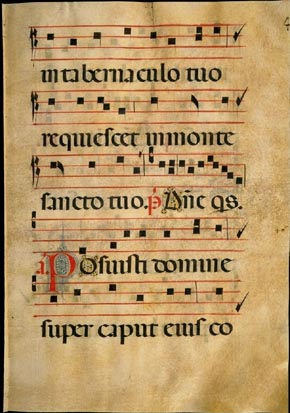 in tabernaculo tuo
requiescet in monte
sancto tuo. p̄ Dn̄e qs.
a. Posuisti domine
super caput eius co